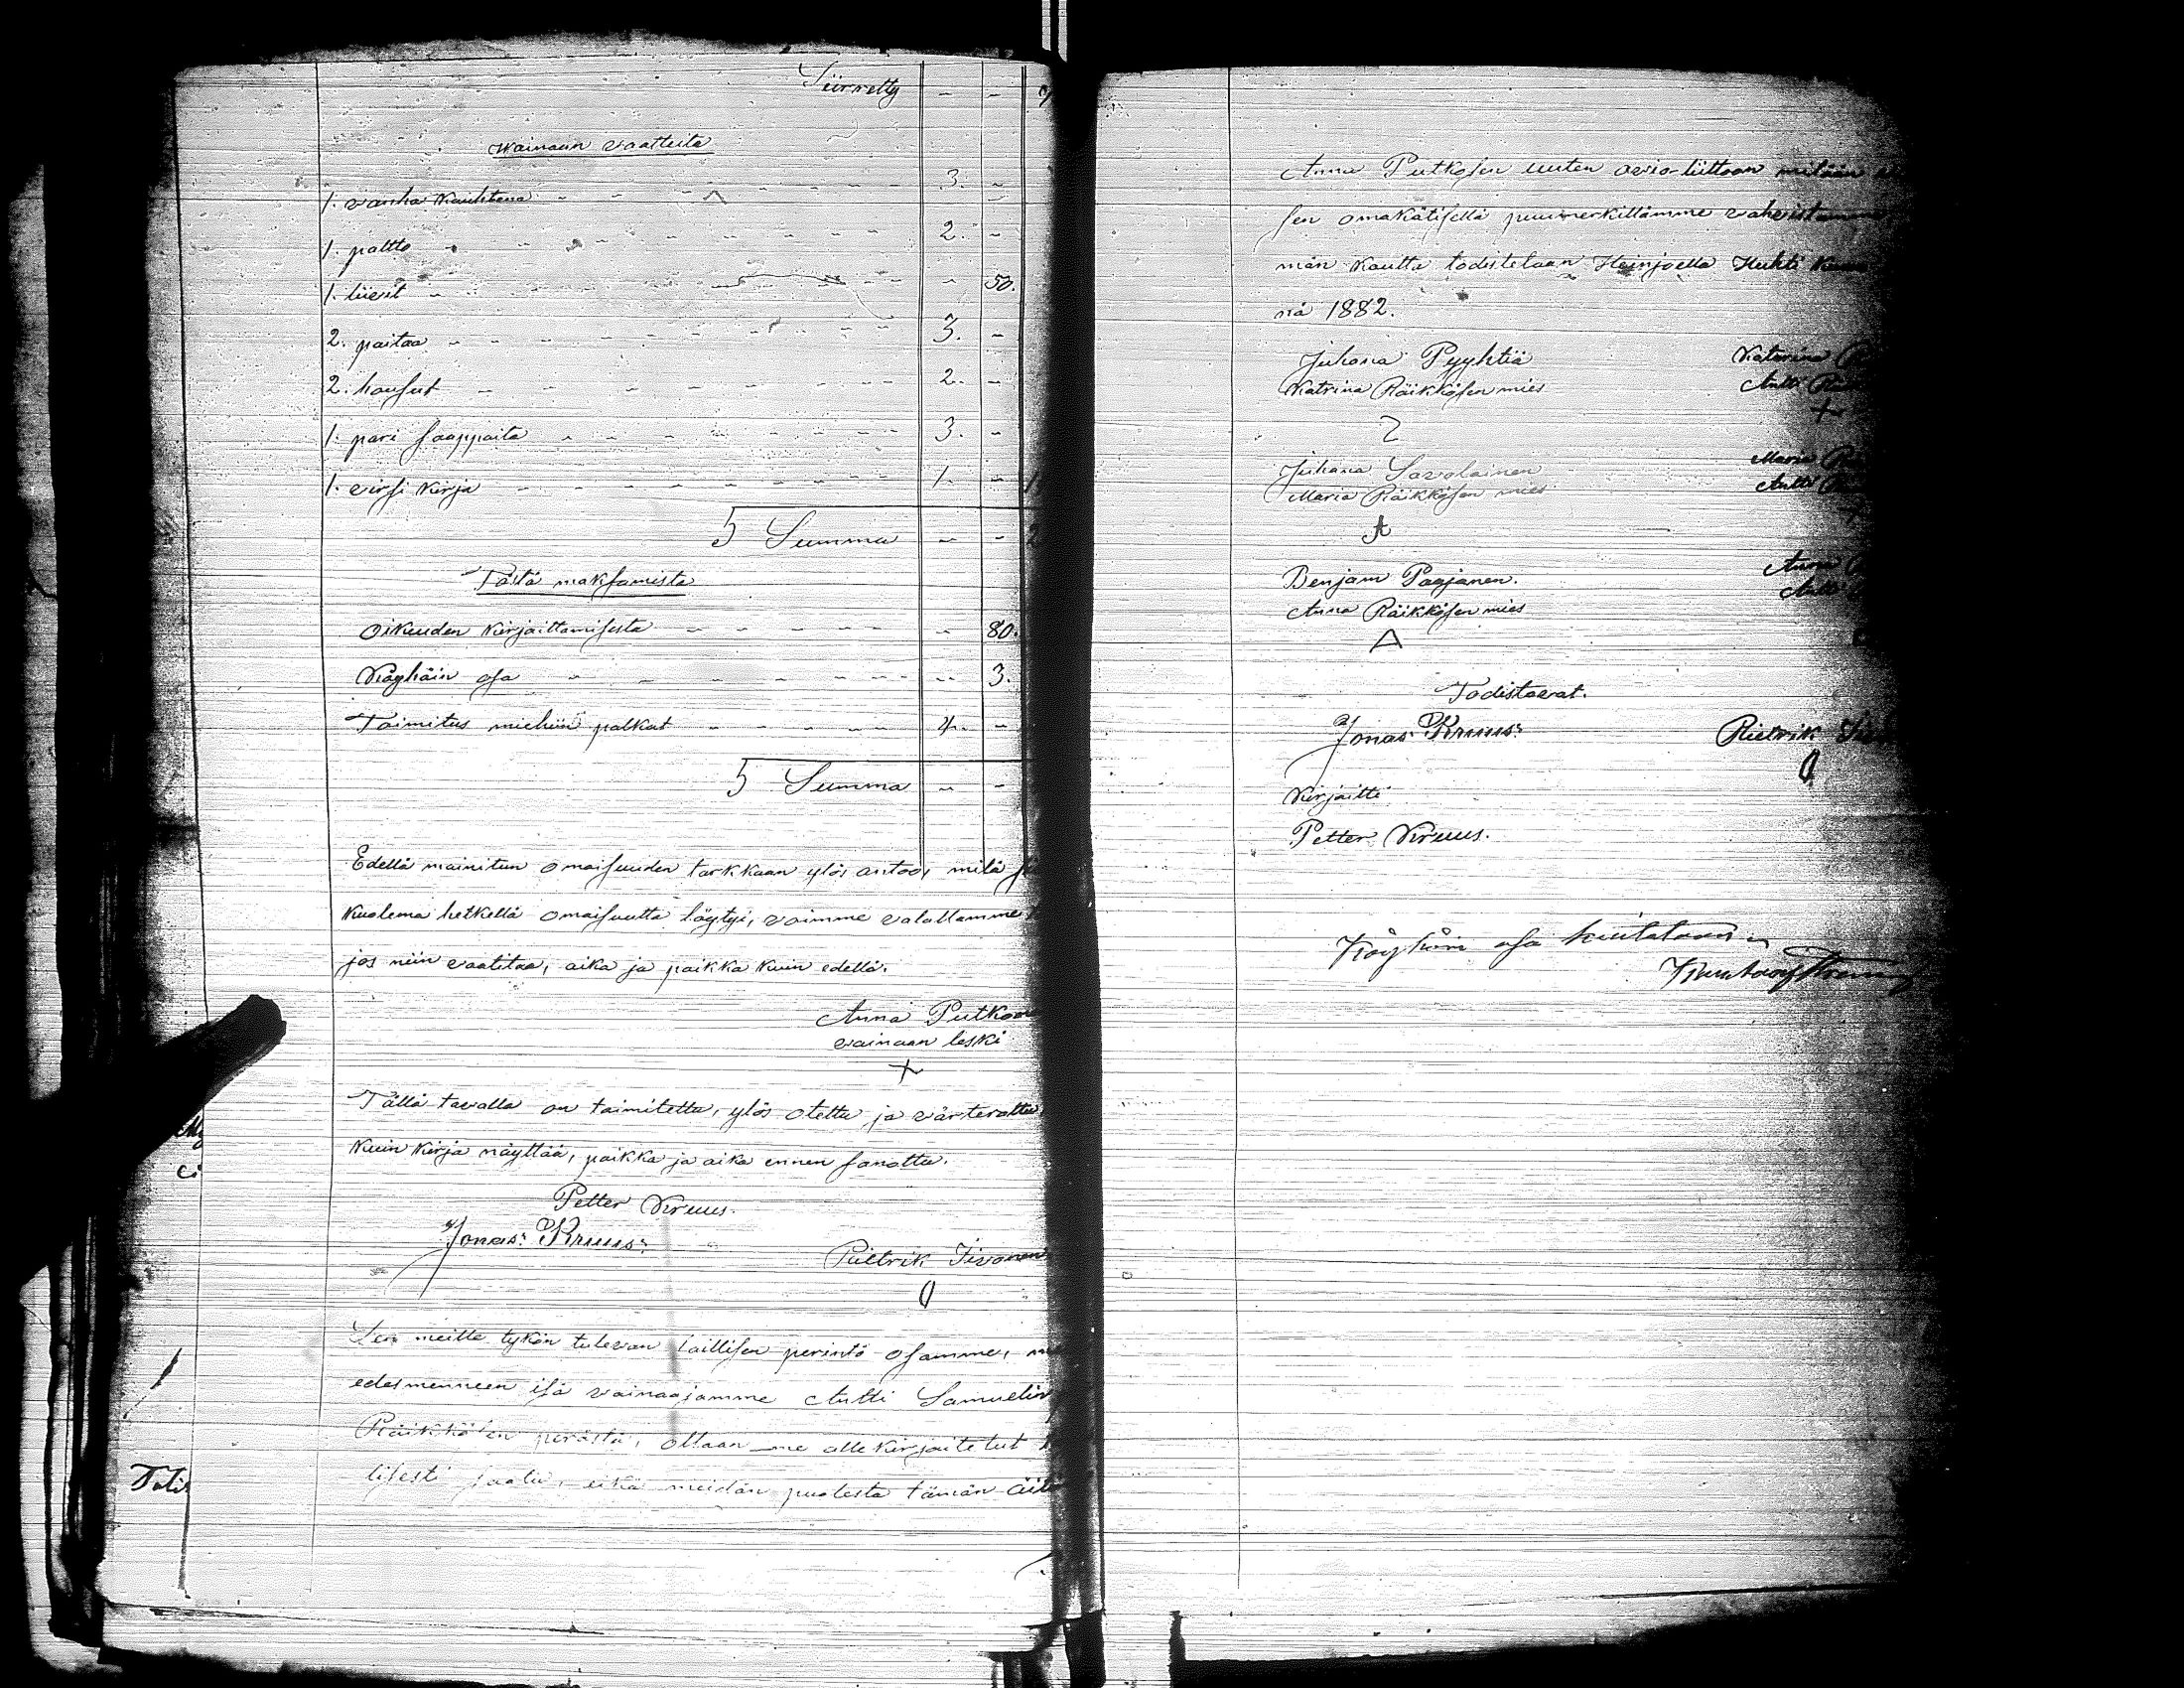 Siirretty - -
Wainaan vaatteita
1. vanha kauhtana - - - 3. -
1. paltto - - - 2. -
1. liivit - - - 50.
2. paitaa - - - 3. -
2. housut - - - 2. -
1. pari saappaita - - - 3. -
1. virsi kirja - - - 1. -
Summa - -
Tästä maksamista
Oikeuden kirjaittamisesta - - - 80.
Köyhäin osa - - - 3.
Toimitus miehiin palkat - - - 4. -
Summa - -
Edellä mainitun omaisuuden tarkkaan ylös antoo, mitä
kuolema hetkellä omaisuutta löytyi, voimme valallamme
jos niin vaatitaa, aika ja paikka kuin edellä.
Anna Putko
vainaan leski
Tällä tavalla on toimitettu, ylös otettu ja värterattu
kuin kirja näyttää, paikka ja aika ennen sanottu.
Petter Kruus.
Jonas Kruus
Pietrik Sivonen
Sen meille tykön tulevan laillisen perintö osamme,
edesmenneen isä vainaajamme Antti Samuelin
Räikkösen perästä, ollaan me alle kirjoitetut
lisesti saatu, eikä meidän puolesta tämän äiti
Toti
Anna Putkosen uuten avio-liittoon mitään
sen omakätisellä puumerkillämme vahvistamme
män kautta todistetaan Heinjoella Huhti kuu
nä 1882.
Juhana Pyyhtiä
Katrina Räikkösen mies
Katarina
Antti
Juhana Savolainen
Maria Räikkösen mies
Maria
Antti
Benjam Paajanen.
Anna Räikkösen mies
Anna
Antti
Todistavat.
Jonas Kruus
Pietrik
Kirjoitti
Petter Kruus.
Köyhäin osa kuitataan